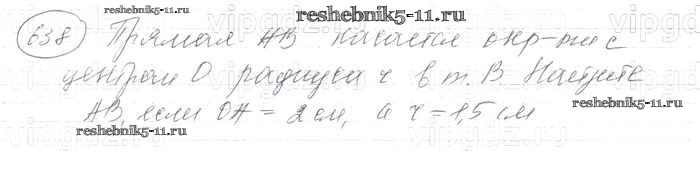 reshebnik5-11.ru
638 Прямая AB касается окр-ти с
центром O радиуса r в т. B. Найдите
reshebnik5-11.ru
AB, если OA = 2 см, а r = 1,5 см
reshebnik5-11.ru